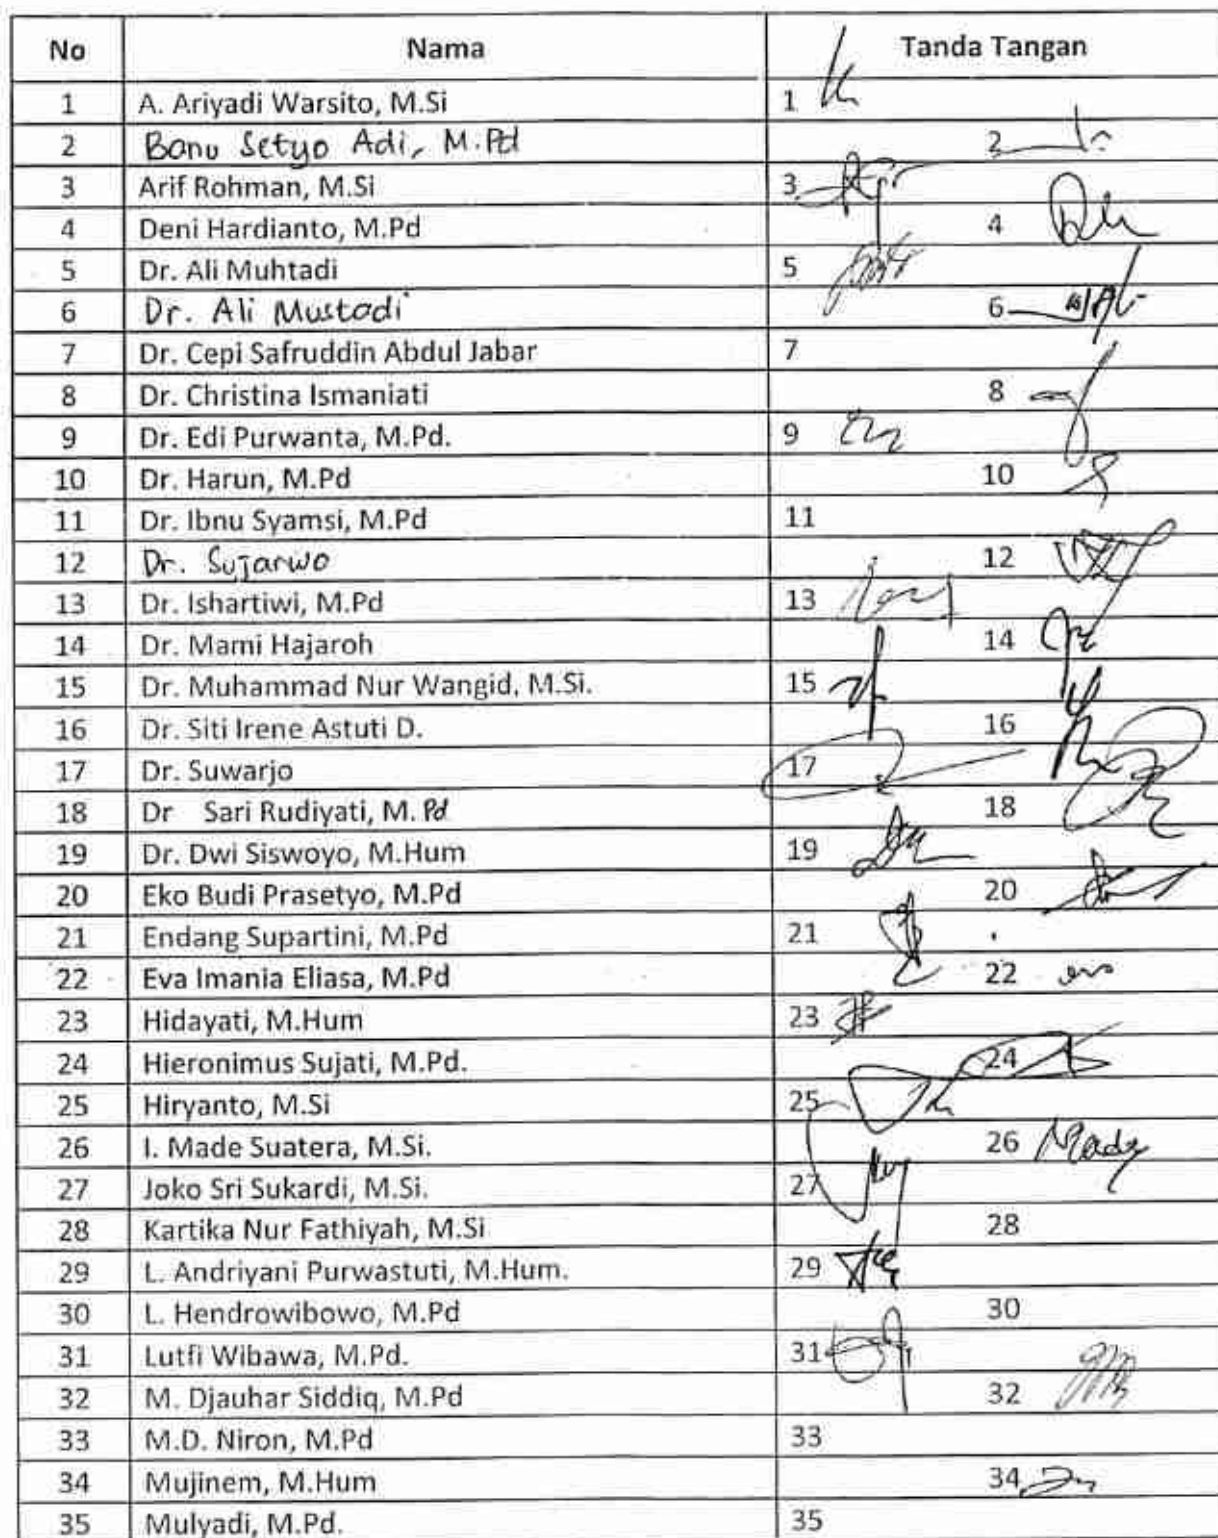 No Nama Tanda Tangan
1 A. Ariyadi Warsito, M.Si 1
2 Banu Setyo Adi, M.Pd 2
3 Arif Rohman, M.Si 3
4 Deni Hardianto, M.Pd 4
5 Dr. Ali Muhtadi 5
6 Dr. Ali Mustadi 6
7 Dr. Cepi Safruddin Abdul Jabar 7
8 Dr. Christina Ismaniati 8
9 Dr. Edi Purwanta, M.Pd. 9
10 Dr. Harun, M.Pd 10
11 Dr. Ibnu Syamsi, M.Pd 11
12 Dr. Sujarwo 12
13 Dr. Ishartiwi, M.Pd 13
14 Dr. Mami Hajaroh 14
15 Dr. Muhammad Nur Wangid, M.Si. 15
16 Dr. Siti Irene Astuti D. 16
17 Dr. Suwarjo 17
18 Dr Sari Rudiyati, M. Pd 18
19 Dr. Dwi Siswoyo, M.Hum 19
20 Eko Budi Prasetyo, M.Pd 20
21 Endang Supartini, M.Pd 21
22 Eva Imania Eliasa, M.Pd 22
23 Hidayati, M.Hum 23
24 Hieronimus Sujati, M.Pd. 24
25 Hiryanto, M.Si 25
26 I. Made Suatera, M.Si. 26 Made
27 Joko Sri Sukardi, M.Si. 27
28 Kartika Nur Fathiyah, M.Si 28
29 L. Andriyani Purwastuti, M.Hum. 29
30 L. Hendrowibowo, M.Pd 30
31 Lutfi Wibawa, M.Pd. 31
32 M. Djauhar Siddiq, M.Pd 32
33 M.D. Niron, M.Pd 33
34 Mujinem, M.Hum 34
35 Mulyadi, M.Pd. 35